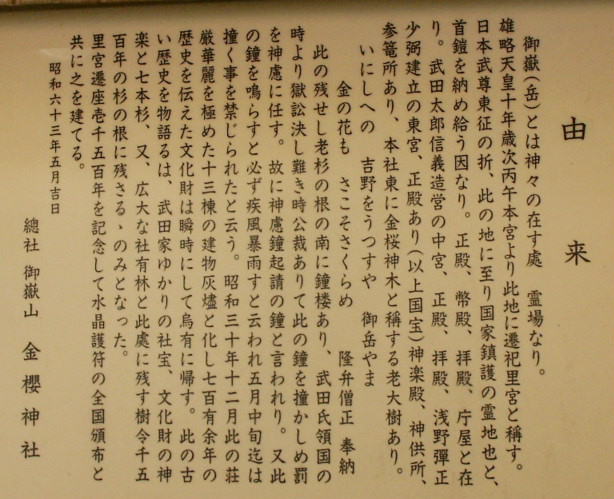 由来
御嶽(岳)とは神々の在す處　霊場なり。
雄略天皇十年歳次丙午本宮より此地に遷祀里宮と稱す。
日本武尊東征の折、此の地に至り国家鎮護の霊地也と、
首鎧を納め給う因なり。正殿、幣殿、拝殿、庁屋と在
り。武田太郎信義造営の中宮、正殿、拝殿、浅野彈正
少弼建立の東宮、正殿あり(以上国宝)神楽殿、神供所、
参篭所あり、本社東に金桜神木と稱する老大樹あり。
いにしへの　吉野をうつすや　御岳やま
金の花も　さこそさくらめ　隆弁僧正 奉納
此の残せし老杉の根の南に鐘楼あり、武田氏領国の
時より獄訟決し難き時公裁ありて此の鐘を撞かしめ罰
を神慮に任す。故に神慮鐘起請の鐘と言われり。又此
の鐘を鳴らすと必ず疾風暴雨すと云われ五月中旬迄は
撞く事を禁じられたと云う。昭和三十年十二月此の荘
厳華麗を極めた十三棟の建物灰燼と化し七百有余年の
歴史を伝えた文化財は瞬時にして烏有に帰す。此の古
い歴史を物語るは　武田家ゆかりの社宝、文化財の神
楽と七本杉、又、広大な社有林と此處に残す樹令千五
百年の杉の根に残さるゝのみとなった。
里宮遷座壱千五百年を記念して水晶護符の全国頒布と
共に之を建てる。
昭和六十三年五月吉日
總社 御嶽山　金櫻神社